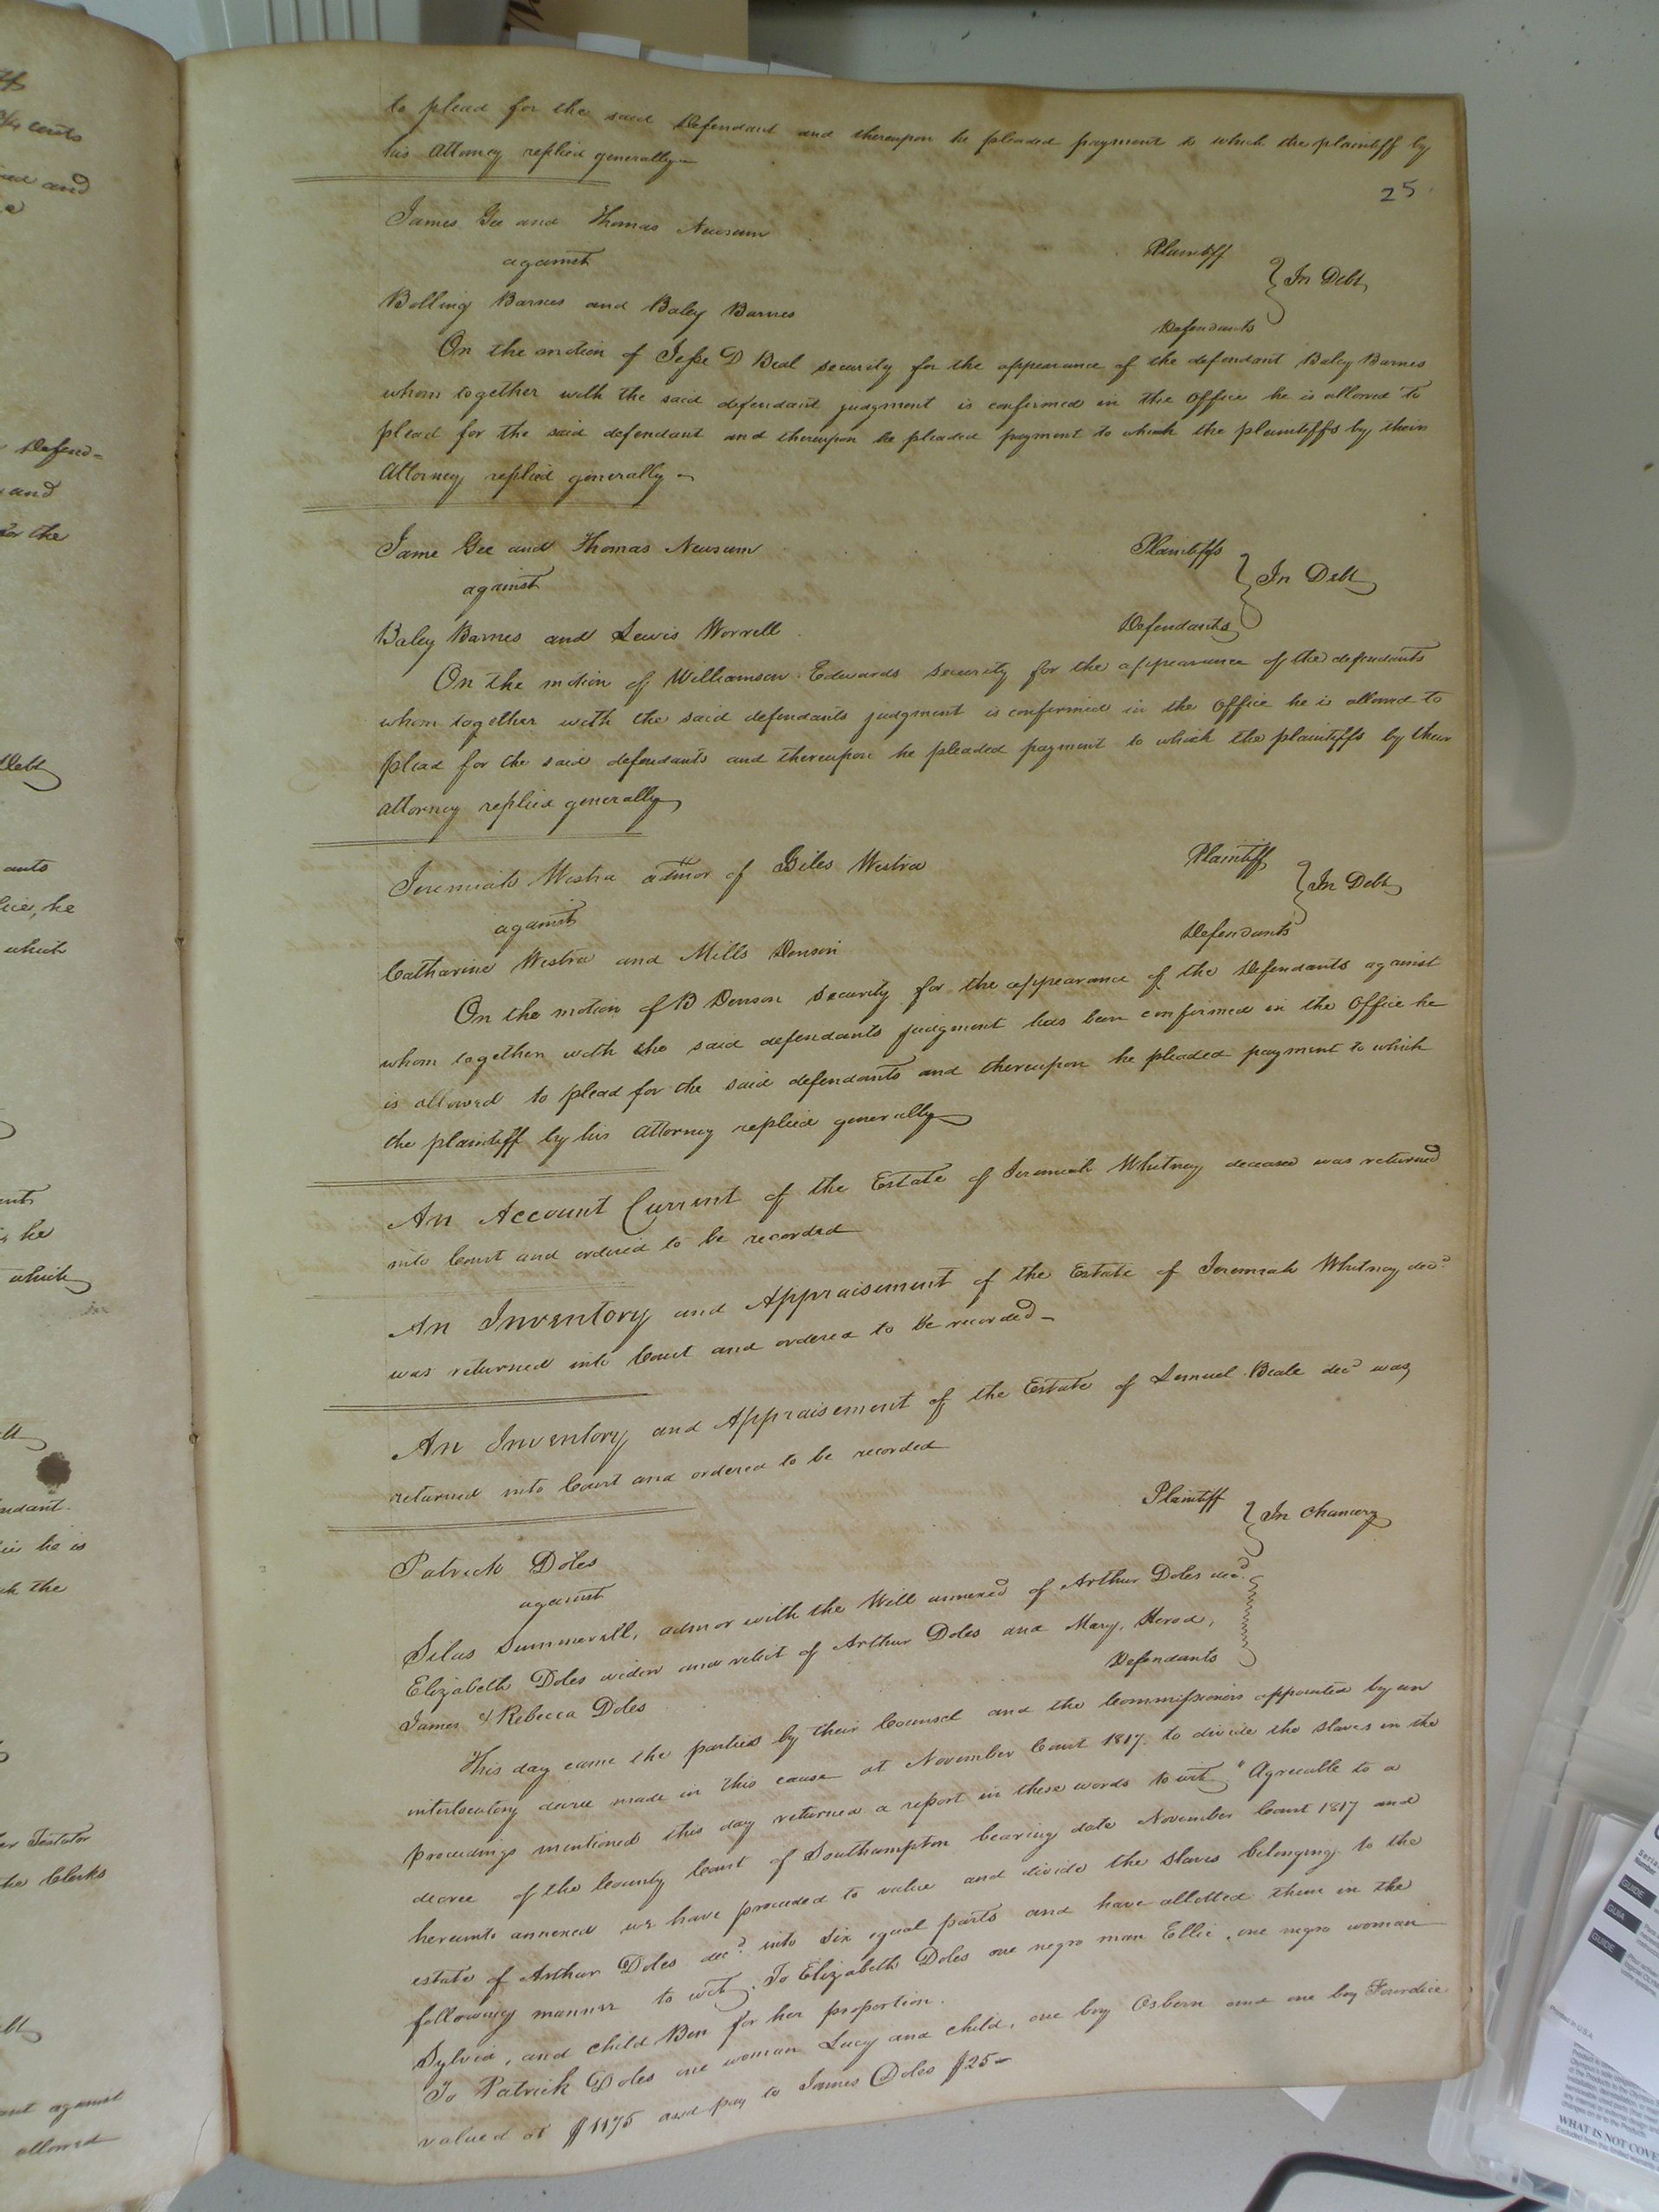 to plead for the said Defendant and thereupon he pleaded payment to which the plaintiff by
his Attorney replied generally
25
James Gee and Thomas Newsum Plaintiff
against In Debt
Bolling Barnes and Baley Barnes Defendants
On the motion of Jesse D Beal security for the appearance of the defendant Baley Barnes
whom together with the said defendant judgment is confirmed in the Office he is allowed to
plead for the said defendant and thereupon he pleaded payment to which the plaintiffs by their
Attorney replied generally
Jame Gee and Thomas Newsum Plaintiffs
against In Debt
Baley Barnes and Lewis Worrell Defendants
On the motion of Williamson Edwards security for the appearance of the defendants
whom together with the said defendants judgment is confirmed in the Office he is allowed to
plead for the said defendants and thereupon he pleaded payment to which the plaintiffs by their
attorney replied generally
Jeremiah Westra admor of Giles Westra Plaintiff
against In Debt
Catharine Westra and Mills Denson Defendants
On the motion of B Denson security for the appearance of the Defendants against
whom together with the said defendants judgment has been confirmed in the Office he
is allowed to plead for the said defendants and thereupon he pleaded payment to which
the plaintiff by his attorney replied generally
An Account Current of the Estate of Jeremiah Whitney deceased was returned
into Court and ordered to be recorded
An Inventory and Appraisement of the Estate of Jeremiah Whitney decd
was returned into Court and ordered to be recorded
An Inventory and Appraisement of the Estate of Lemuel Beale decd was
returned into Court and ordered to be recorded
Patrick Doles Plaintiff
against In Chancery
Silas Summerell, admor with the Will annexed of Arthur Doles decd
Elizabeth Doles widow and relict of Arthur Doles and Mary, Herod,
James & Rebecca Doles Defendants
This day came the parties by their Counsel and the Commissioners appointed by an
interlocutory decree made in this cause at November Court 1817 to divide the slaves in the
proceedings mentioned this day returned a report in these words to wit, "Agreeable to a
decree of the County Court of Southampton bearing date November Court 1817 and
hereunto annexed we have proceeded to value and divide the slaves belonging to the
estate of Arthur Doles decd into six equal parts and have allotted them in the
following manner to wit, To Elizabeth Doles one negro man Ellic, one negro woman
Sylvia, and child Ben for her proportion.
To Patrick Doles one woman Lucy and child, one boy Osborn and one boy
valued at $1175 and pay to James Doles $25